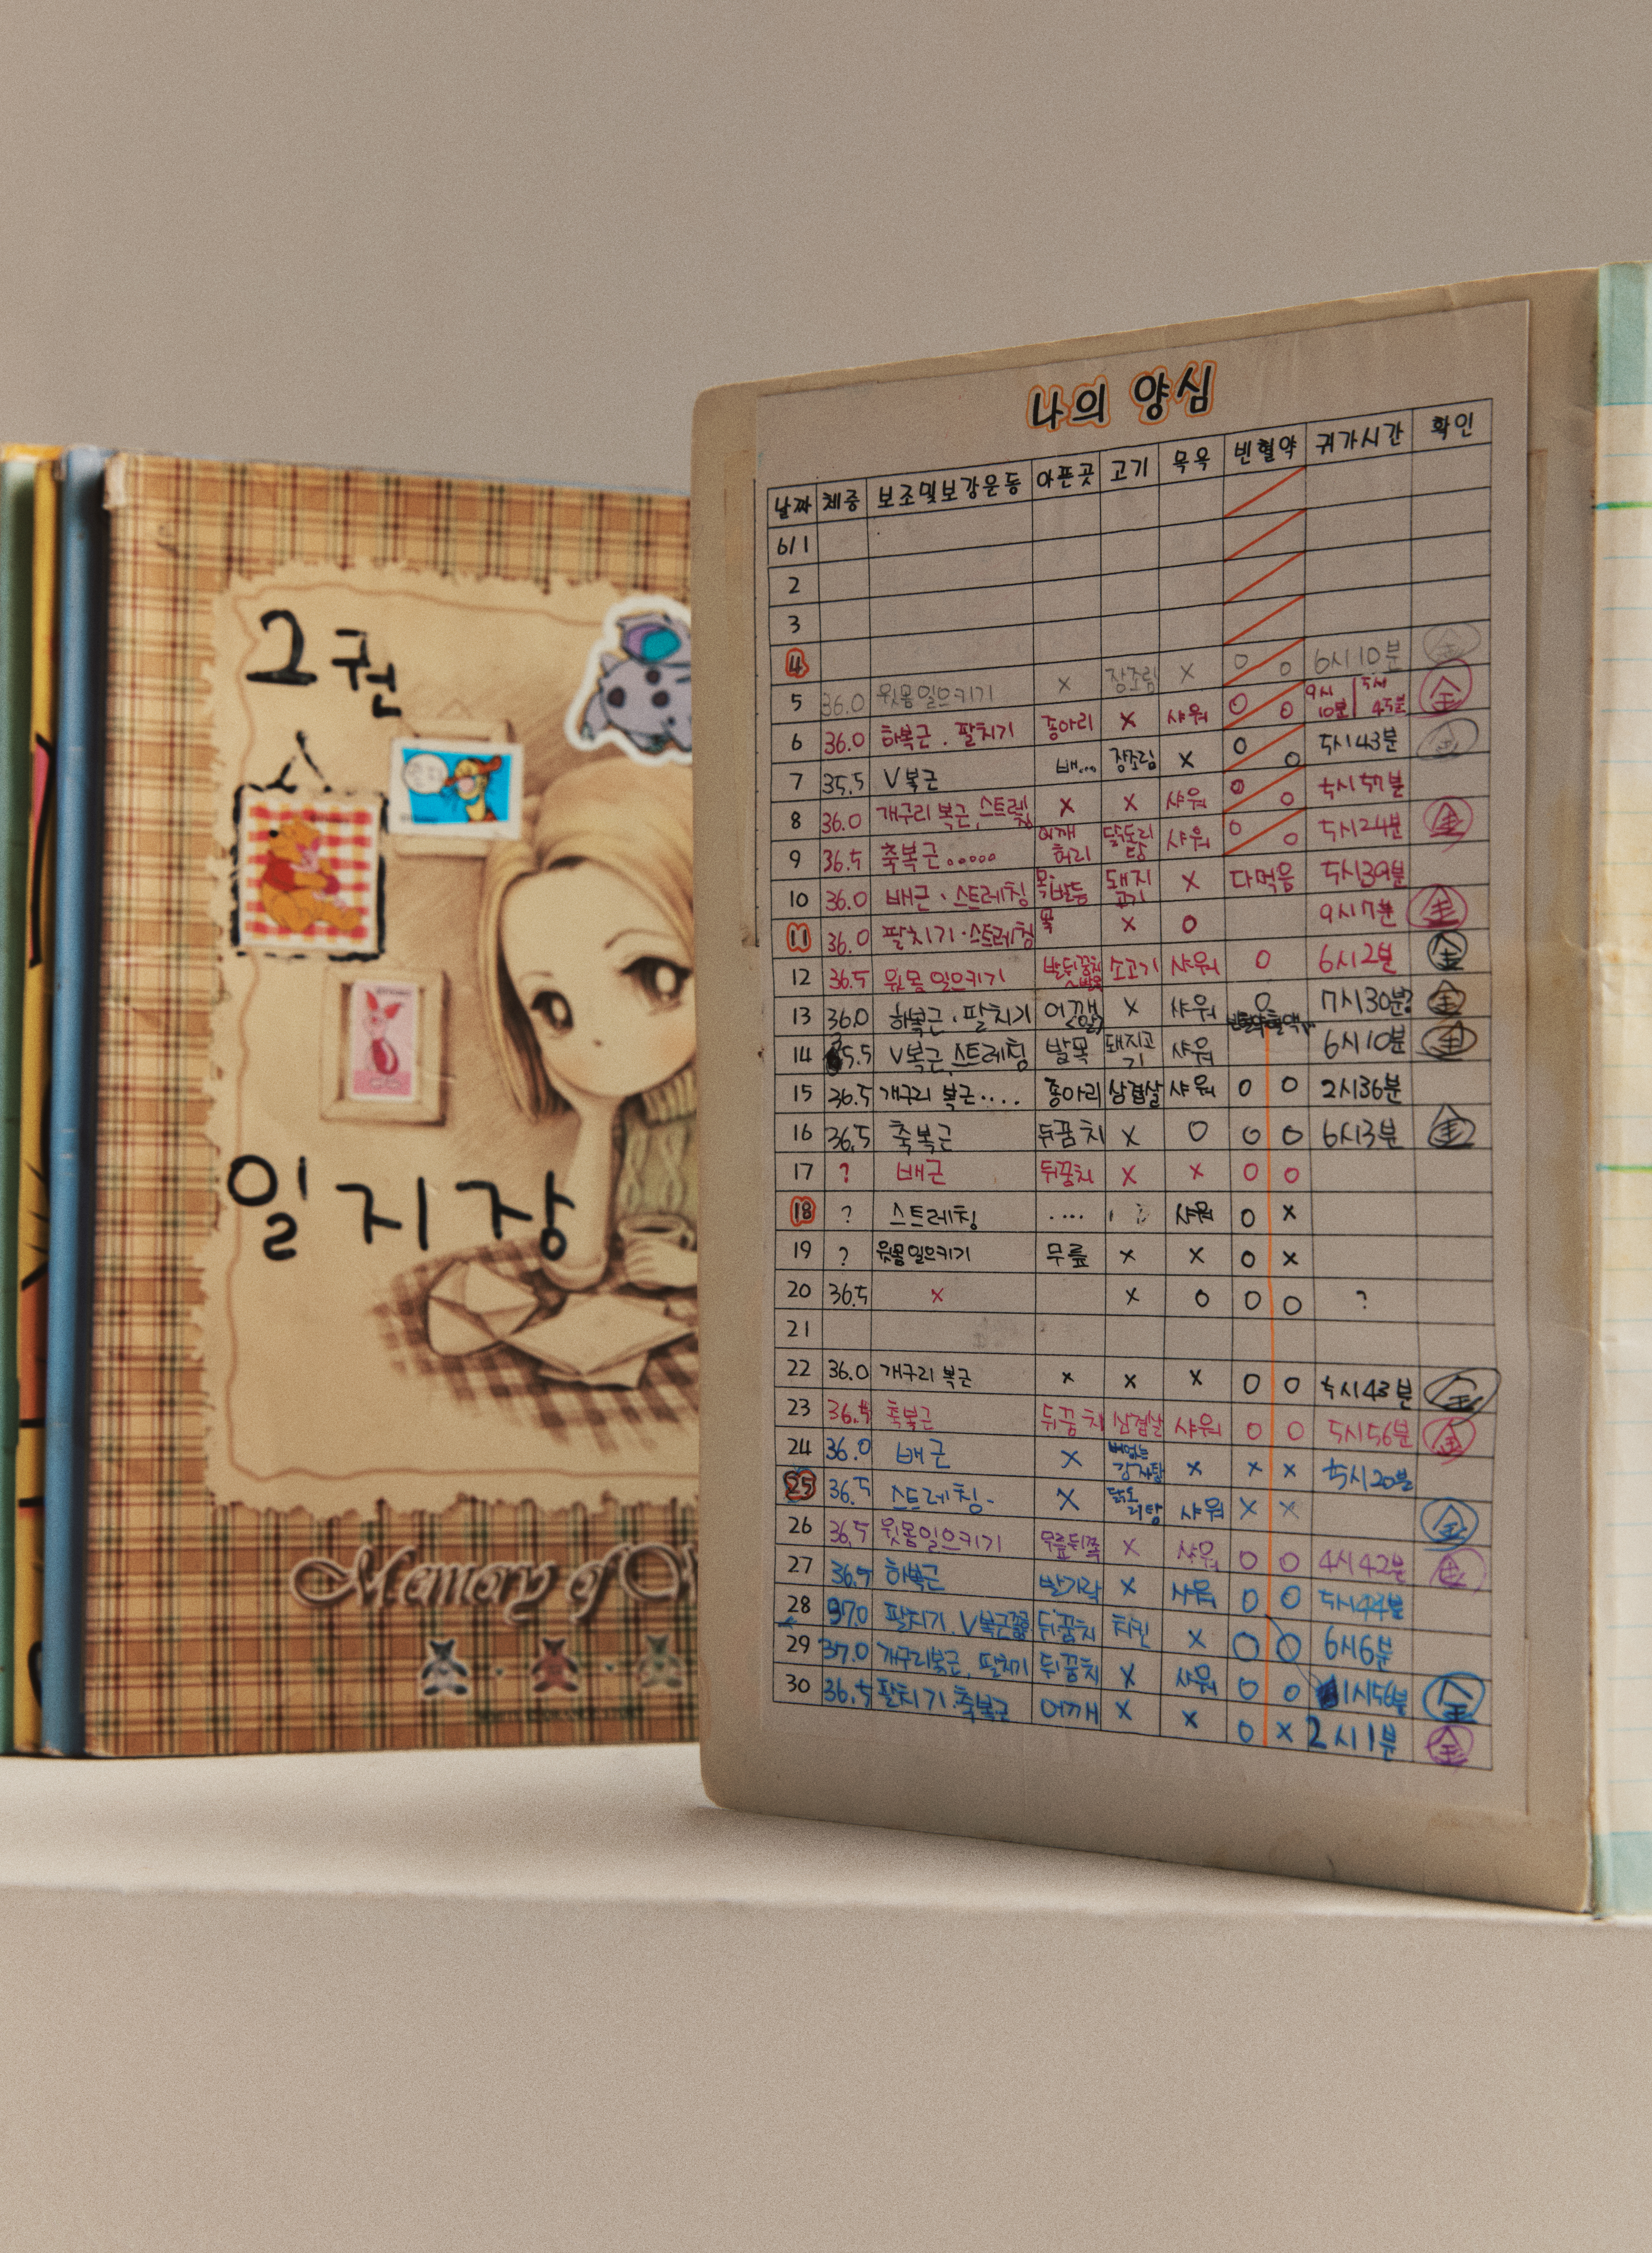 2권
일지장
Memory of
나의 양심
날짜 체중 보조및보강운동 아픈곳 고기 목욕 빈혈약 귀가시간 확인
6/1
2
3
4
5 36.0 윗몸일으키기 x 장조림 x o o 6시10분 金
6 36.0 하복근. 팔치기 종아리 x 샤워 o o 9시10분 5시45분 金
7 35.5 V복근 배... 장조림 x o o 5시43분 金
8 36.0 개구리 복근, 스트레칭 x x 샤워 o o 5시57분
9 36.5 축복근..... 어깨 허리 닭도리탕 샤워 o o 5시24분 金
10 36.0 배근·스트레칭 목, 발등 돼지고기 x 다먹음 5시39분
11 36.0 팔치기·스트레칭 목 x o 9시7분 金
12 36.5 윗몸일으키기 소고기 샤워 o 6시2분 金
13 36.0 하복근·팔치기 어깨 x 샤워 o 7시30분? 金
14 35.5 V복근, 스트레칭 발목 돼지고기 샤워 6시10분 金
15 36.5 개구리 복근.... 종아리 삼겹살 샤워 o o 2시36분
16 36.5 축복근 뒤꿈치 x o o o 6시3분 金
17 ? 배근 뒤꿈치 x x o o
18 ? 스트레칭 .... 샤워 o x
19 ? 윗몸일으키기 무릎 x x o x
20 36.5 x x o o o ?
21
22 36.0 개구리 복근 x x x o o 5시43분 金
23 36.5 축복근 뒤꿈치 삼겹살 샤워 o o 5시56분 金
24 36.0 배근 x 뼈없는 감자탕 x x x 5시20분
25 36.5 스트레칭- x 닭도리탕 샤워 x x 金
26 36.5 윗몸일으키기 무릎뒤쪽 x 샤워 o o 4시42분 金
27 36.5 하복근 발가락 x 샤워 o o 5시44분
28 37.0 팔치기, V복근 뒤꿈치 치킨 x o o 6시6분
29 37.0 개구리복근, 팔치기 뒤꿈치 x 샤워 o o 1시56분 金
30 36.5 팔치기·축복근 어깨 x x o x 2시1분 金